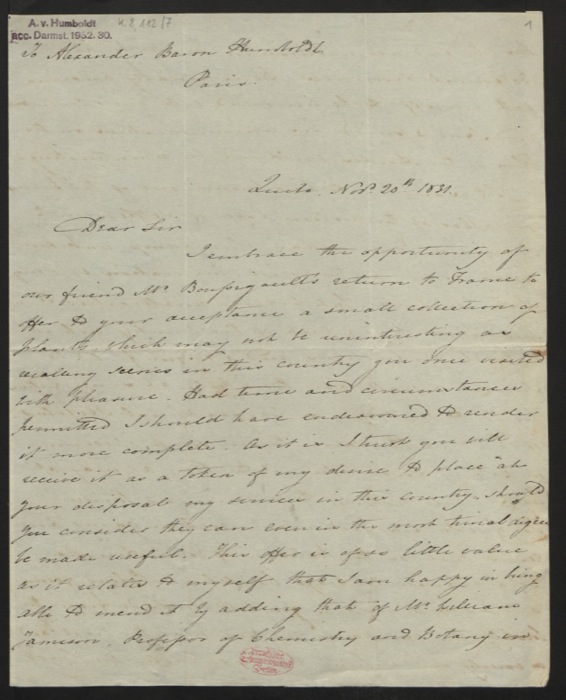 A. v. Humboldt
acc. Darmst. 1932. 30.
1
To Alexander Baron Humboldt
Paris.
Quito. Nov. 20th 1831.
Dear Sir
I embrace the opportunity of
our friend Mr Boussigault's return to France to
offer to your acceptance a small collection of
plants, which may not be uninteresting as
recalling scenes in this country you once visited
with pleasure. Had time and circumstances
permitted I should have endeavoured to render
it more complete. As it is I trust you will
receive it as a token of my desire to place at
your disposal my services in this country, should
you consider they can even in the most trivial degree
be made useful. This offer is of so little value
as it relates to myself that I am happy in being
able to mend it by adding that of Mr.
Jameson, Professor of Chemistry and Botany in